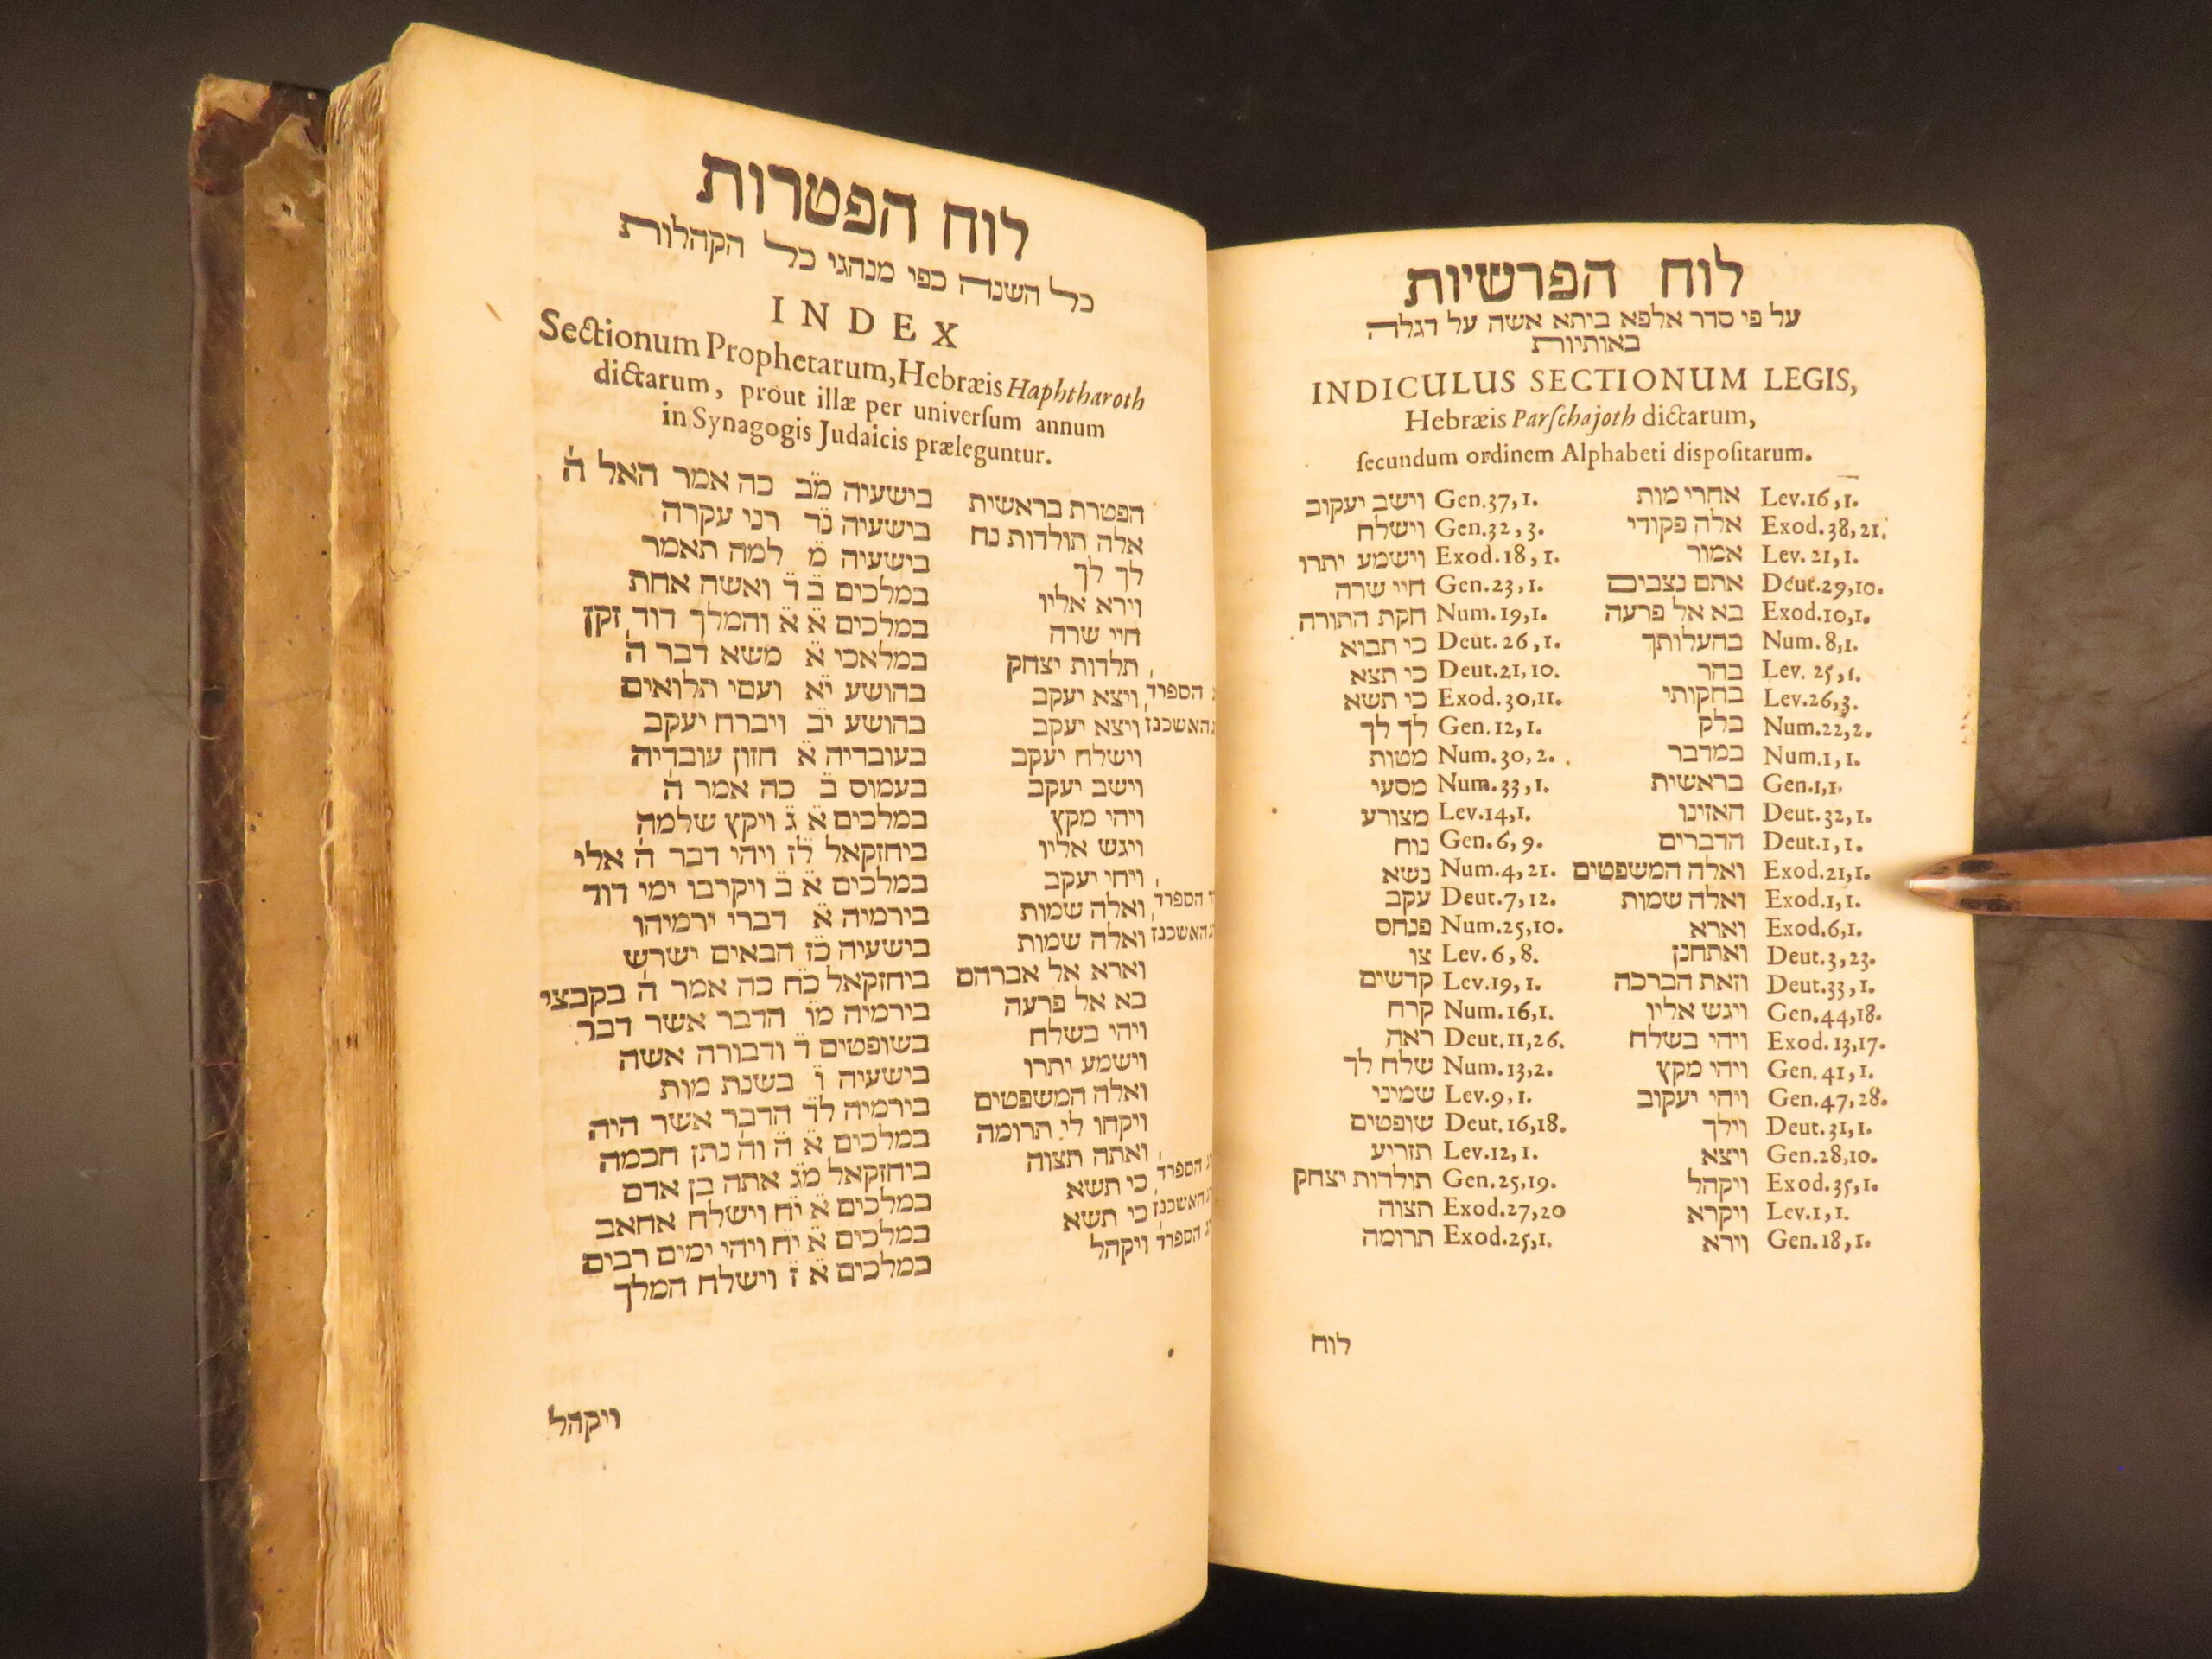 לוח הפרשיות
על פי סדר אלפא ביתא אשה על דגלה
באותיות
INDICULUS SECTIONUM LEGIS,
Hebræis Parſchajoth dictarum,
ſecundum ordinem Alphabeti diſpoſitarum.
אחרי מות Lev.16,1.
אלה פקודי Exod.38,21.
אמור Lev.21,1.
אתם נצבים Deut.29,10.
בא אל פרעה Exod.10,1.
בהעלותך Num.8,1.
בהר Lev.25,1.
בחקותי Lev.26,3.
בלק Num.22,2.
במדבר Num.1,1.
בראשית Gen.1,1.
האזינו Deut.32,1.
הדברים Deut.1,1.
ואלה המשפטים Exod.21,1.
ואלה שמות Exod.1,1.
וארא Exod.6,1.
ואתחנן Deut.3,23.
וזאת הברכה Deut.33,1.
ויגש אליו Gen.44,18.
ויהי בשלח Exod.13,17.
ויהי מקץ Gen.41,1.
ויהי יעקוב Gen.47,28.
וילך Deut.31,1.
ויצא Gen.28,10.
ויקהל Exod.35,1.
ויקרא Lev.1,1.
וירא Gen.18,1.
וישב יעקוב Gen.37,1.
וישלח Gen.32,3.
וישמע יתרו Exod.18,1.
חיי שרה Gen.23,1.
חקת התורה Num.19,1.
כי תבוא Deut.26,1.
כי תצא Deut.21,10.
כי תשא Exod.30,11.
לך לך Gen.12,1.
מטות Num.30,2.
מסעי Num.33,1.
מצורע Lev.14,1.
נוח Gen.6,9.
נשא Num.4,21.
עקב Deut.7,12.
פנחס Num.25,10.
צו Lev.6,8.
קדשים Lev.19,1.
קרח Num.16,1.
ראה Deut.11,26.
שלח לך Num.13,2.
שמיני Lev.9,1.
שופטים Deut.16,18.
תזריע Lev.12,1.
תולדות יצחק Gen.25,19.
תצוה Exod.27,20
תרומה Exod.25,1.
לוח
לוח הפטרות
כל השנה כפי מנהגי כל הקהלות
INDEX
Sectionum Prophetarum, Hebræis Haphtharoth
dictarum, prout illæ per univerſum annum
in Synagogis Judaicis præleguntur.
הפטרת בראשית בישעיה מ̈ב כה אמר האל ה̇
אלה תולדות נח בישעיה נ̈ד רני עקרה
לך לך בישעיה מ̈ למה תאמר
וירא אליו במלכים ב̈ ד̈ ואשה אחת
חיי שרה במלכים א̈ א̈ והמלך דוד זקן
תלדות יצחק במלאכי א̈ משא דבר ה̇
הספרד׳ ויצא יעקב בהושע י̈א ועמי תלואים
האשכנז׳ ויצא יעקב בהושע י̈ב ויברח יעקב
וישלח יעקב בעובדיה א̈ חזון עובדיה
וישב יעקב בעמוס ב̈ כה אמר ה̇
ויהי מקץ במלכים א̈ ג̈ ויקץ שלמה
ויגש אליו ביחזקאל ל̈ז ויהי דבר ה̇ אלי
ויחי יעקב במלכים א̈ ב̈ ויקרבו ימי דוד
הספרד׳ ואלה שמות בירמיה א̈ דברי ירמיהו
האשכנז׳ ואלה שמות בישעיה כ̈ז הבאים ישרש
וארא אל אברהם ביחזקאל כ̈ח כה אמר ה̇ בקבצי
בא אל פרעה בירמיה מ̈ו הדבר אשר דבר
ויהי בשלח בשופטים ד̈ ודבורה אשה
וישמע יתרו בישעיה ו̈ בשנת מות
ואלה המשפטים בירמיה ל̈ד הדבר אשר היה
ויקחו לי תרומה במלכים א̈ ה̈ וה̇ נתן חכמה
ואתה תצוה ביחזקאל מ̈ג אתה בן אדם
הספרד׳ כי תשא במלכים א̈ י̈ח וישלח אחאב
האשכנז׳ כי תשא במלכים א̈ י̈ח ויהי ימים רבים
הספרד׳ ויקהל במלכים א̈ ז̈ וישלח המלך
ויקהל